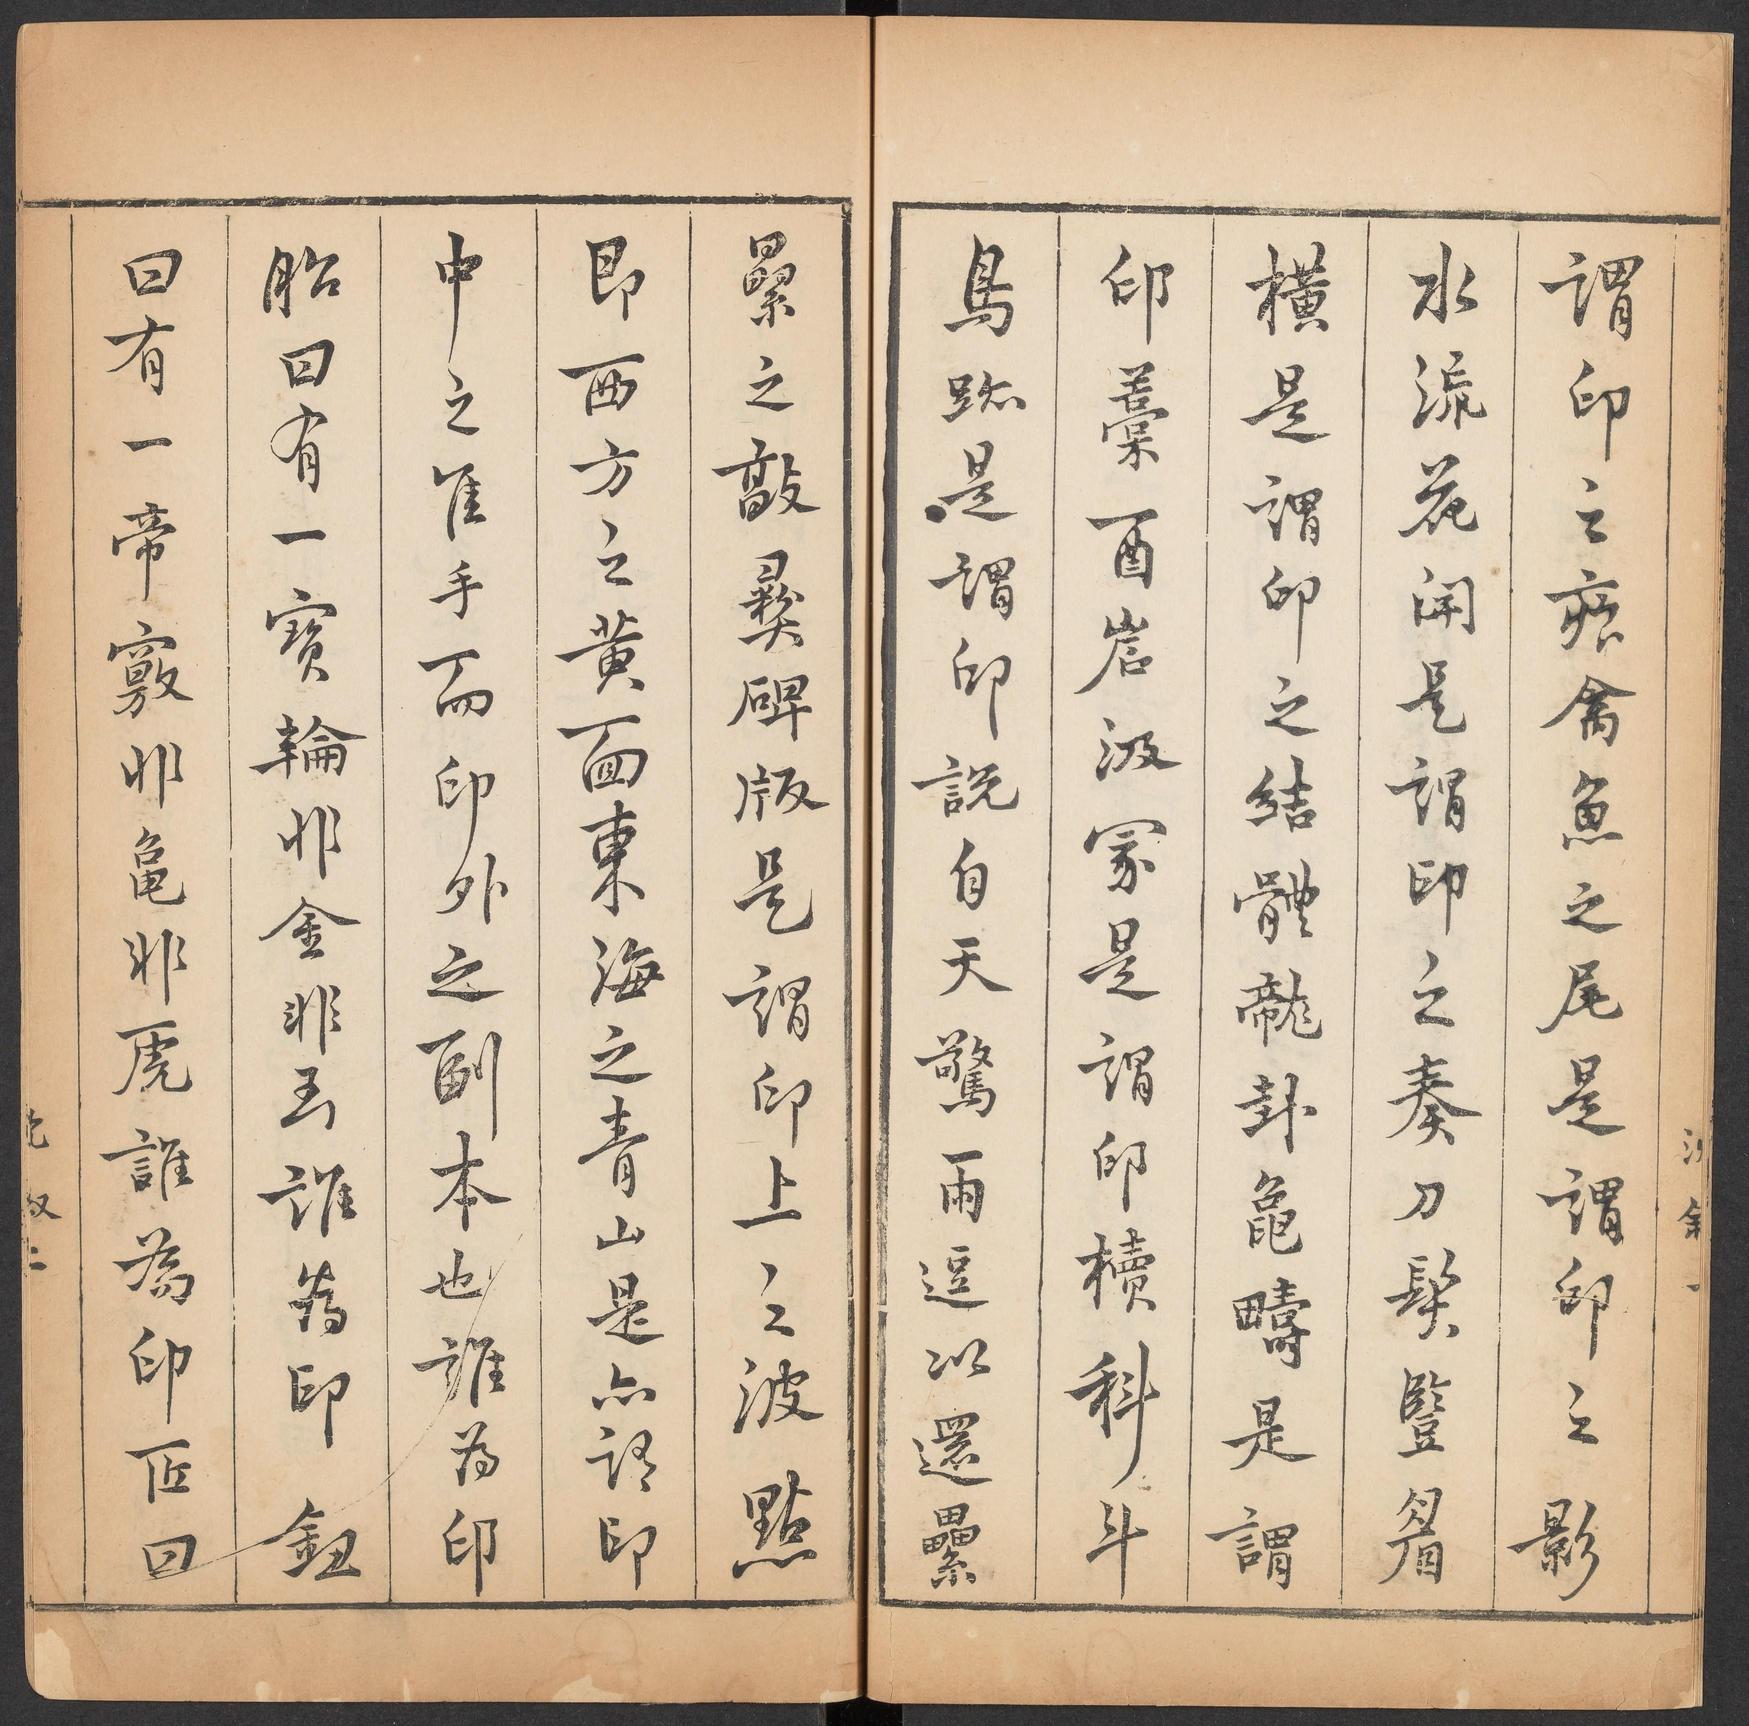 謂印之痕禽魚之尾是謂印之影
水流花開是謂印之奏刀髮豎眉
橫是謂印之結體龍卦龜疇是謂
印藁酉岩汲冢是謂印櫝科斗
鳥跡是謂印說自天驚雨逗以還纍
纍之敲彝碑版是謂印上之波點
即西方之黃面東海之青山是亦謂印
中之隻手而印外之副本也誰為印
胎曰有一寶輪非金非玉誰為印鈕
曰有一帝竅非龜非虎誰為印匠曰